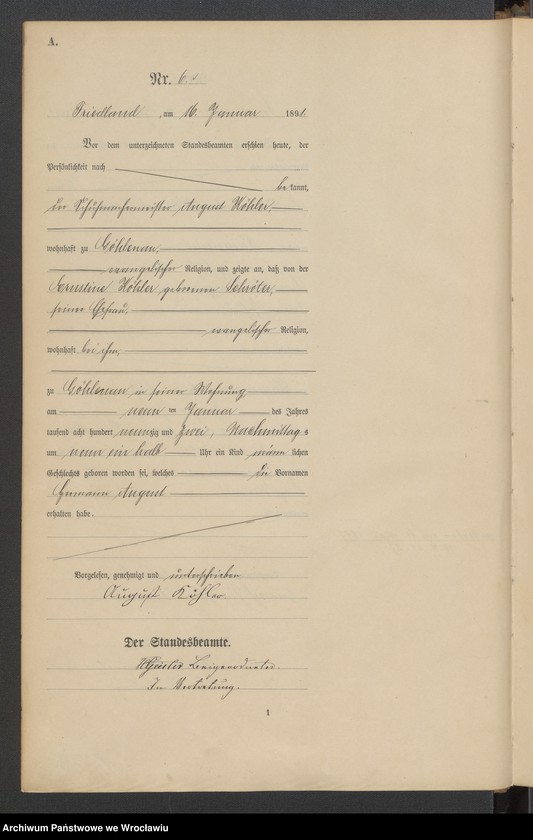 A.
Nr. 6
Friedland, am 16 Januar 1892
Vor dem unterzeichneten Standesbeamten erschien heute, der
Persönlichkeit nach
be kannt,
der Schuhmachermeister August Köhler,
wohnhaft zu Göhlenau,
evangelischer Religion, und zeigte an, daß von der
Ernestine Köhler geborenen Schröter,
seiner Ehefrau,
evangelischer Religion,
wohnhaft bei ihm,
zu Göhlenau in seiner Wohnung
am neun ten Januar des Jahres
tausend acht hundert neunzig und zwei, Nachmittag s
um neun ein halb Uhr ein Kind männ lichen
Geschlechts geboren worden sei, welches die Vornamen
Hermann August
erhalten habe.
Vorgelesen, genehmigt und unterschrieben
August Köhler
Der Standesbeamte.
Beigeordneter.
In Vertretung.
1
Archiwum Państwowe we Wrocławiu